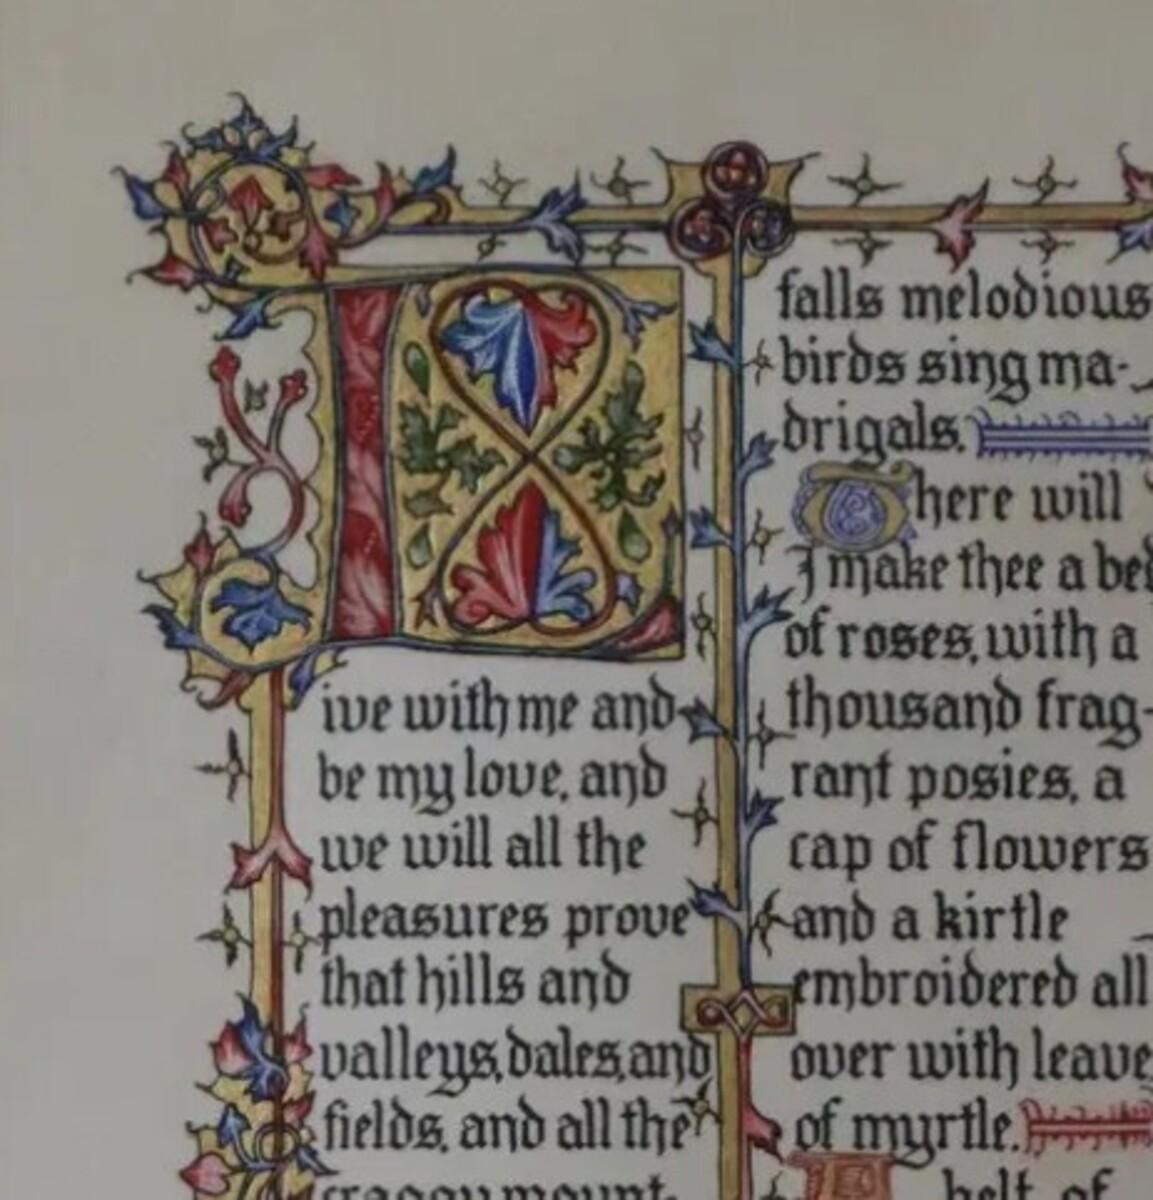 Live with me and
be my love, and
we will all the
pleasures prove
that hills and
valleys, dales, and
fields, and all the
craggy mount-
falls melodious
birds sing ma-
drigals.
There will
I make thee a bed
of roses, with a
thousand frag-
rant posies, a
cap of flowers
and a kirtle
embroidered all
over with leave
of myrtle.
A belt of